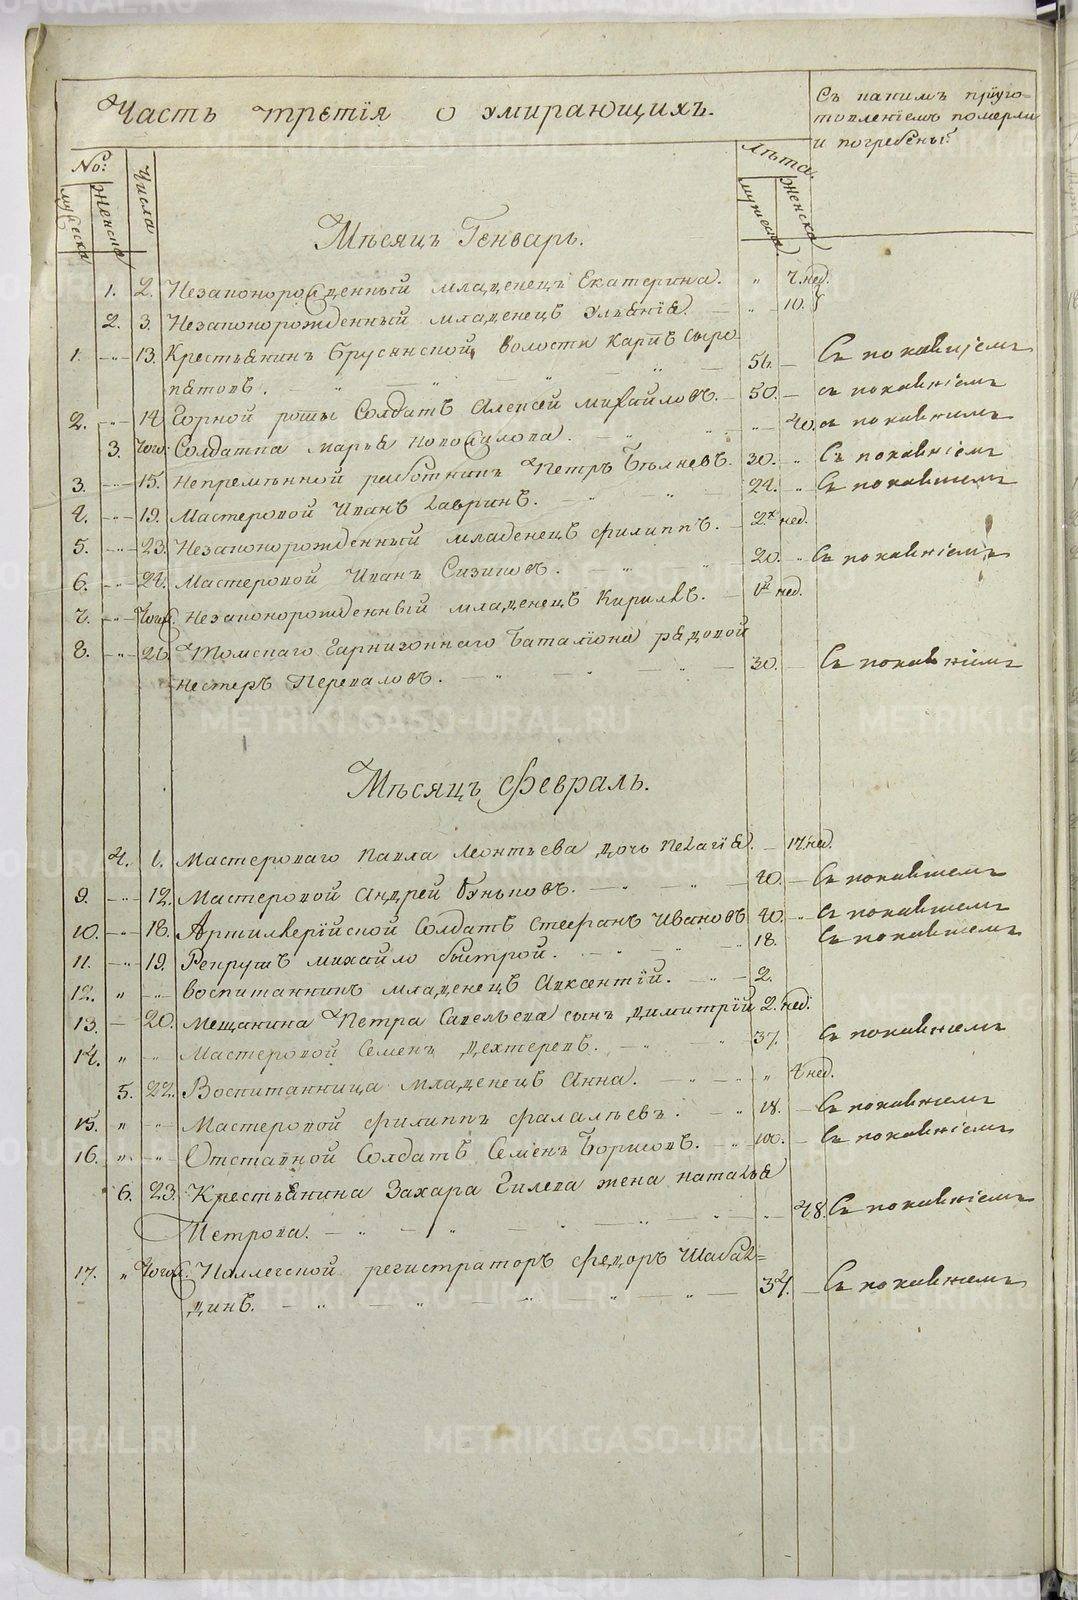 Часть третія о умирающихъ.
Съ какимъ пріуго-
товленіемъ померли
и погребены:
№:
мужеска
женска
Числа
Лѣта.
мужеска
женска
Мѣсяцъ Генварь.
1. 2. Незаконорожденный младенецъ Екатерина. " 7. нед.
2. 3. Незаконорожденный младенецъ Ульянія. — " — 10.
1. —"— 13. Крестьянинъ Брусянской волости Карпъ Сыро-
пятовъ. — " — " — " — " — 56. — Съ покаяніемъ
2. —"— 14. Горной роты Солдатъ Алексей Михайловъ. — 50. — съ покаяніемъ
3. того. Солдатка Марья Новоселова. — " — " — 40. съ покаяніемъ
3. —"— 15. Непремѣнной работникъ Петръ Бѣляевъ. 30. " Съ покаяніемъ
4. —"— 19. Мастеровой Иванъ Лавринъ. — " — " — 24. " Съ покаяніемъ
5. —"— 23. Незаконорожденный младенецъ Филиппъ. — 2х нед.
6. —"— 24. Мастеровой Иванъ Сизиковъ. — " — " — 20. " Съ покаяніемъ
7. —"— того. Незаконорожденный младенецъ Кирилъ. — 1й нед.
8. —"— 26. Томскаго Гарнизоннаго Баталіона рядовой
Нестеръ Переваловъ. — " — " — " — 30. — Съ покаяніемъ
Мѣсяцъ Февраль.
4. 1. Мастероваго Павла Леонтьева дочь Пелагія. — 17. нед.
9. —"— 12. Мастеровой Андрей Буньковъ. — " — " — 40. — Съ покаяніемъ
10. —"— 18. Артиллерійской Солдатъ Стефанъ Ивановъ 40. " Съ покаяніемъ
11. —"— 19. Рекрутъ Михайло Быстрой. — " — " — 18. Съ покаяніемъ
12. " —"— воспитанникъ младенецъ Авксентій. — " — 2.
13. — 20. Мещанина Петра Савельева сынъ Димитрій 2. нед.
14. " —"— Мастеровой Семенъ Дехтеревъ. — " — " 37. Съ покаяніемъ
5. 22. Воспитанница младенецъ Анна. — " — " 4 нед.
15. " —"— Мастеровой Филиппъ Фалалѣевъ. — " 18. — Съ покаяніемъ
16. " —"— Отставной Солдатъ Семенъ Борисовъ. — " 100. — Съ покаяніемъ
6. 23. Крестьянина Захара Гилева жена Наталья
Петрова. — " — " — " — " — 48. Съ покаяніемъ
17. " того. Коллегской регистраторъ Федоръ Шабал=
динъ. — " — " — " — " — 34. — Съ покаяніемъ
METRIKI.GASO-URAL.RU